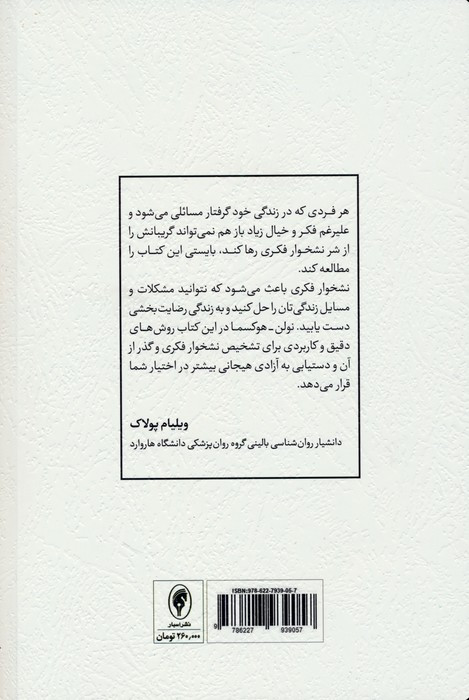 هر فردی که در زندگی خود گرفتار مسائلی می‌شود و
علیرغم فکر و خیال زیاد باز هم نمی‌تواند گریبانش را
از شر نشخوار فکری رها کند، بایستی این کتاب را
مطالعه کند.
نشخوار فکری باعث می‌شود که نتوانید مشکلات و
مسایل زندگی‌تان را حل کنید و به زندگی رضایت‌بخشی
دست یابید. نولن ـ هوکسما در این کتاب روش‌های
دقیق و کاربردی برای تشخیص نشخوار فکری و گذر از
آن و دستیابی به آزادی هیجانی بیشتر در اختیار شما
قرار می‌دهد.
ویلیام پولاک
دانشیار روان‌شناسی بالینی گروه روان‌پزشکی دانشگاه هاروارد
ISBN:978-622-7939-05-7
9 786227 939057
نشر اسبار
۲۶۰,۰۰۰ تومان